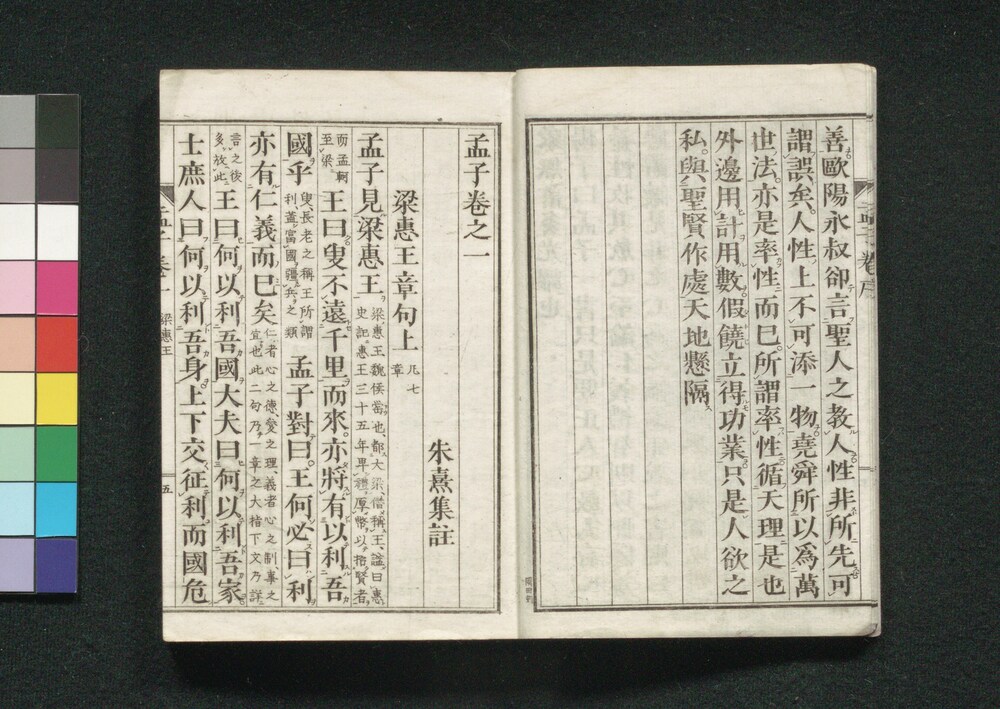 善歐陽永叔卻言聖人之教人性非所先可
謂誤矣人性上不可添一物堯舜所以爲萬
世法亦是率性而已所謂率性循天理是也
外邊用計用數假饒立得功業只是人欲之
私與聖賢作處天地懸隔
孟子卷之一
朱熹集註
梁惠王章句上 凡七章
孟子見梁惠王 梁惠王魏侯罃也都大梁僭稱王諡曰惠史記惠王三十五年卑禮厚幣以招賢者
而孟軻至梁 王曰叟不遠千里而來亦將有以利吾
國乎 叟長老之稱王所謂利蓋富國彊兵之類 孟子對曰王何必曰利
亦有仁義而已矣 仁者心之德愛之理義者心之制事之宜也此二句乃一章之大指下文乃詳
言之後多放此 王曰何以利吾國大夫曰何以利吾家
士庶人曰何以利吾身上下交征利而國危
梁惠王
五